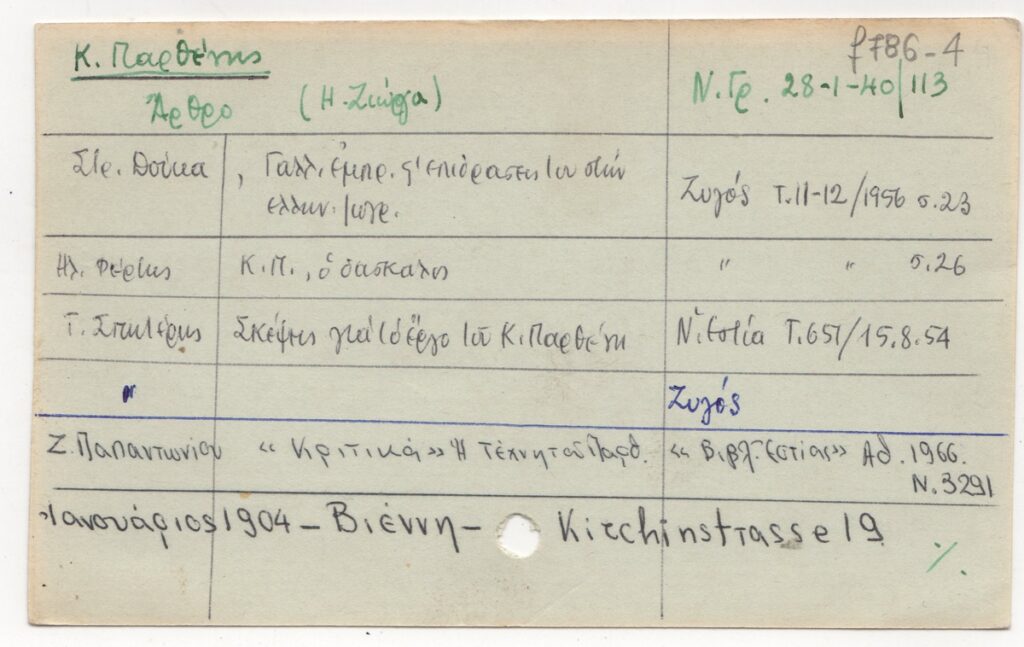 Κ. Παρθένης
f786-4
Άρθρο (Η. Ζιώγα) Ν. Γρ. 28-1-40/113
Στρ. Δούκα , Γαλλ. έμπρ. κ' επιδρασεις του στην
ελλην. ζωγρ.
Ζυγός Τ. 11-12/1956 σ. 23
Ηλ. Φέρτης Κ.Π., ὁ δασκαλος " " σ. 26
Τ. Σπητέρης Σκέψεις γιά τό ἔργο τοῦ Κ. Παρθένη Ν. Ἑστία Τ. 651/15.8.54
" Ζυγός
Ζ. Παπαντωνίου « Κριτικά » Ἡ Τέχνη τοῦ Παρθ. « Βιβλ. Εστίας » Αθ. 1966.
Ν. 3291
Ιανουάριος 1904 – Βιέννη – Kirchinstrasse 19
%.